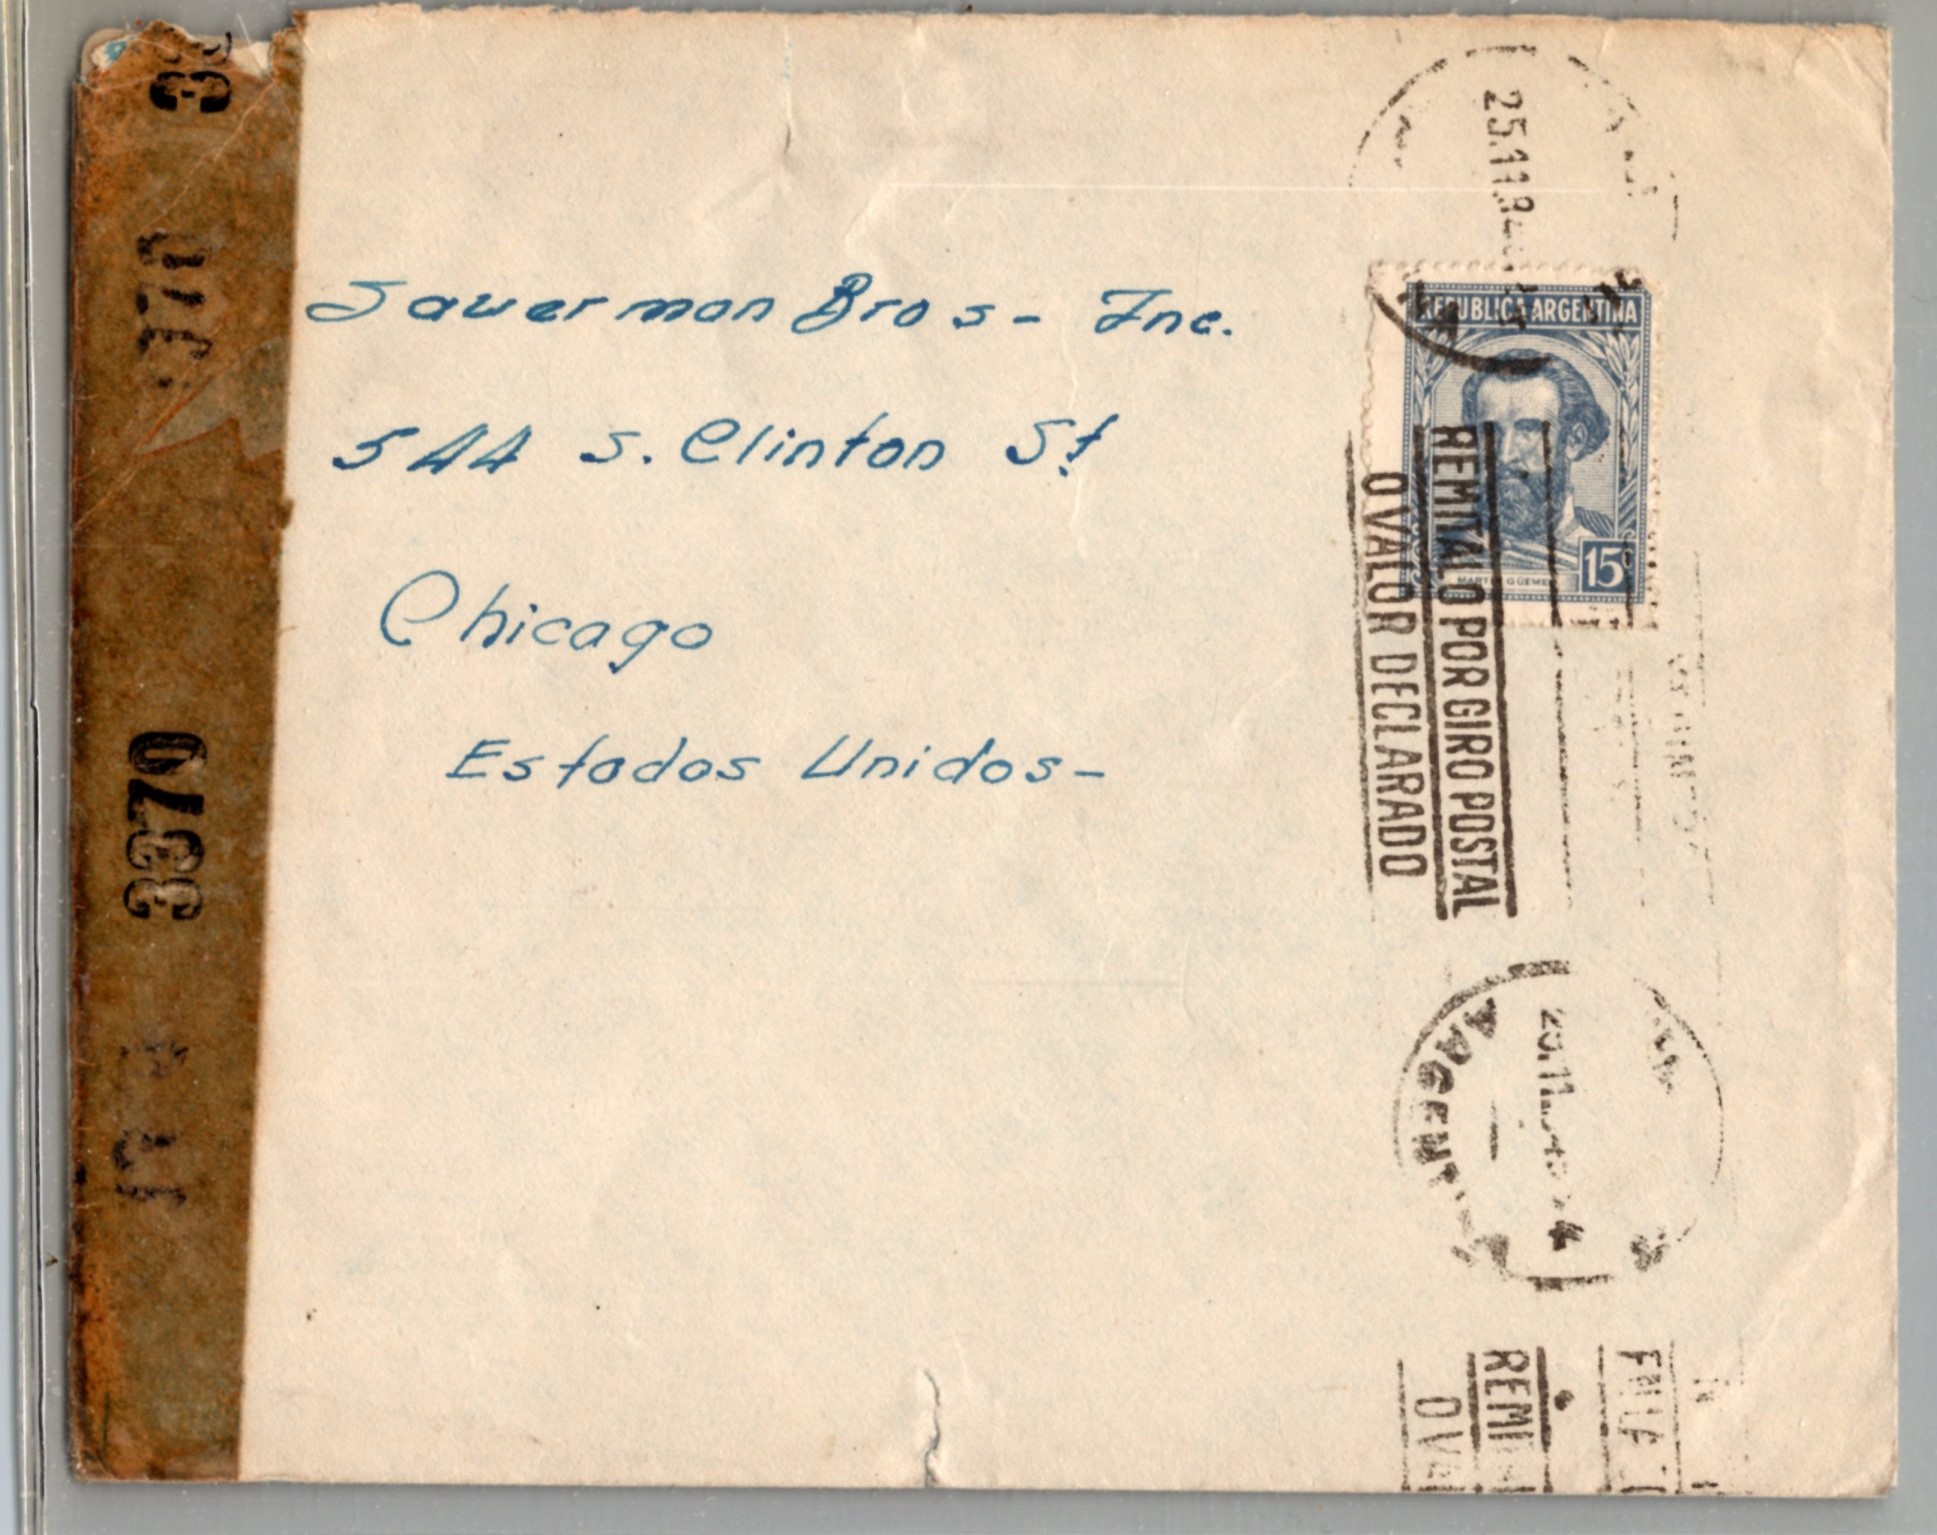 Sauerman Bros - Inc.
544 S. Clinton St.
Chicago
Estados Unidos -
REPUBLICA ARGENTINA
MARTIN GÜEMES
15c
25.11.94
REMITALO POR GIRO POSTAL
O VALOR DECLARADO
ARGENT
REMI
O VA
3370
370